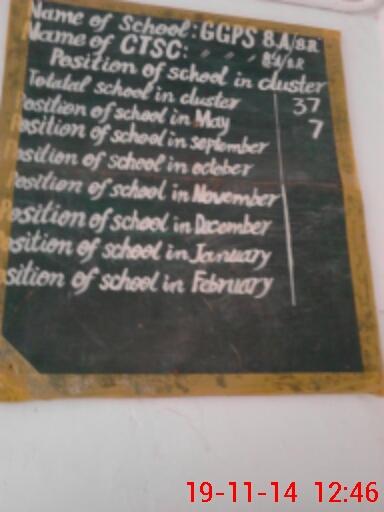 Name of School: GGPS 8.A/8.R
Name of CTSC: " " " 8.A/8.R
Position of school in cluster
Totatal school in cluster 37
Position of school in May 7
Position of school in september
Position of school in october
Position of school in November
Position of school in December
Position of school in January
Position of school in February
19-11-14 12:46